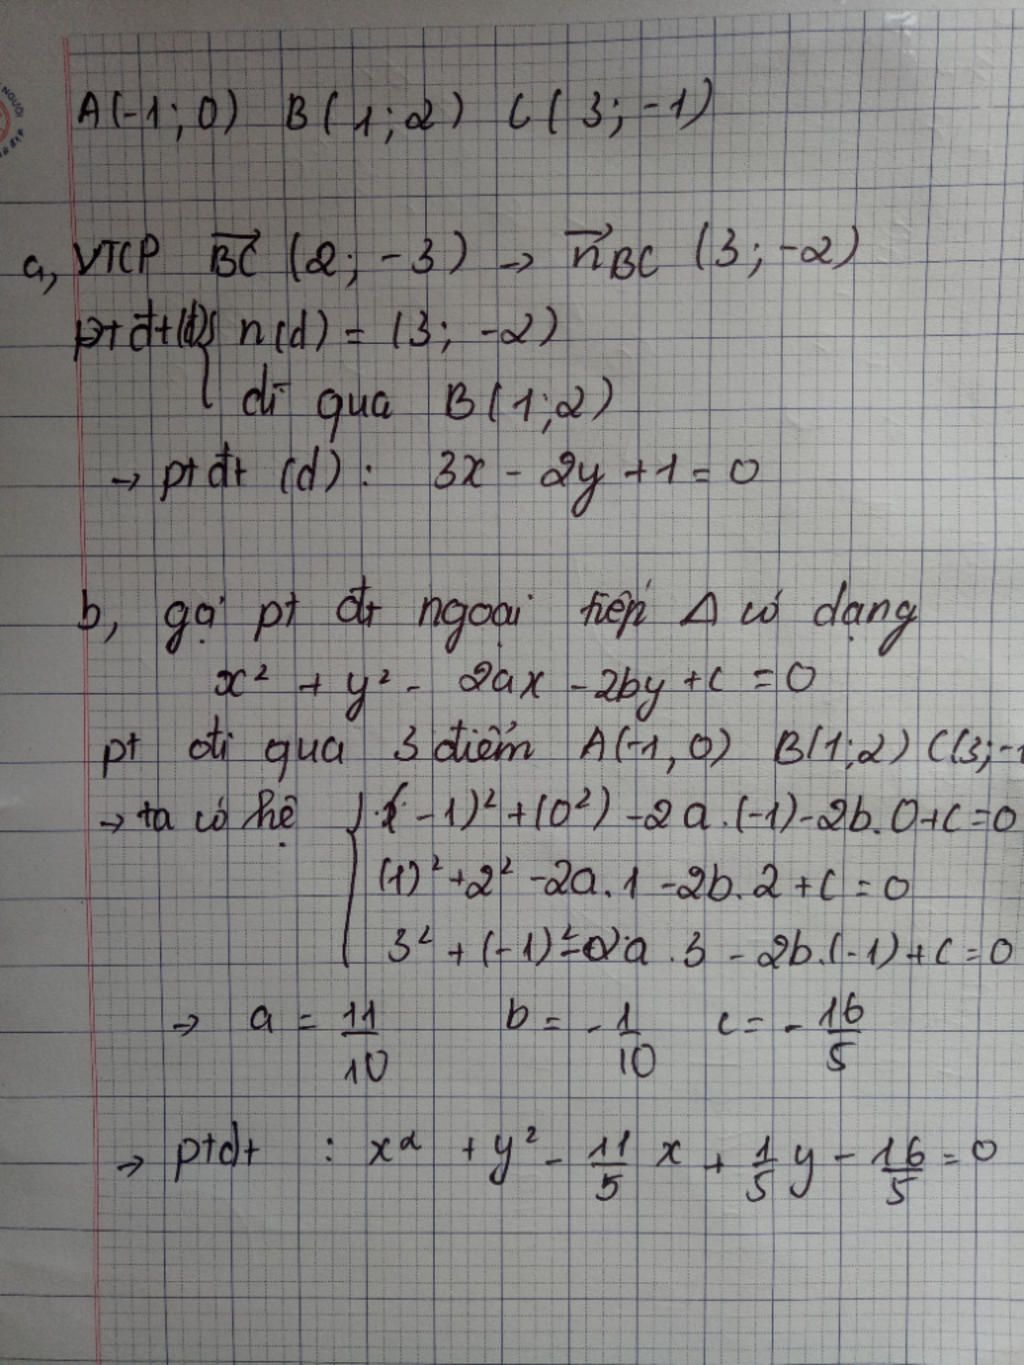 A(-1; 0) B(1; 2) C(3; -1)
a, VTCP \overrightarrow{BC} (2; -3) → \overrightarrow{n}_{BC} (3; -2)
ptđt(d) { n(d) = (3; -2)
đi qua B(1;2)
→ ptđt (d): 3x - 2y + 1 = 0
b, gọi pt đt ngoại tiếp Δ có dạng
x² + y² - 2ax - 2by + c = 0
pt đi qua 3 điểm A(-1, 0) B(1;2) C(3; -1
→ ta có hệ { (-1)² + (0²) - 2a.(-1) - 2b.0 + c = 0
(1)² + 2² - 2a.1 - 2b.2 + c = 0
3² + (-1)² - 2a.3 - 2b.(-1) + c = 0
→ a = 11/10 b = -1/10 c = -16/5
→ ptđt : x² + y² - 11/5 x + 1/5 y - 16/5 = 0